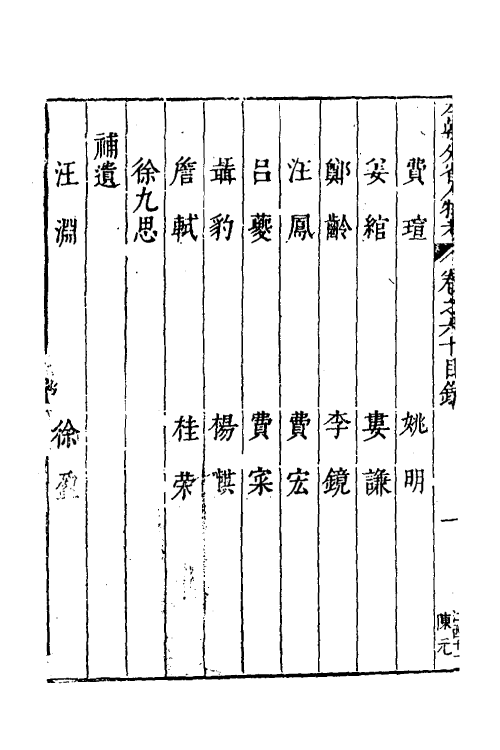 費瑄 姚明
姜綰 婁謙
鄭齡 李鏡
汪鳳 費宏
呂夔 費寀
聶豹 楊麒
詹軾 桂榮
徐九思
補遺
汪淵 徐盈
卷之六十目錄
一
陳元